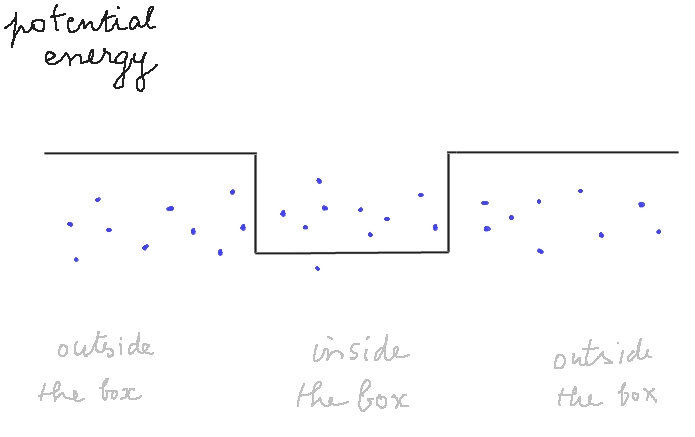 potential
energy
outside
the box
inside
the box
outside
the box